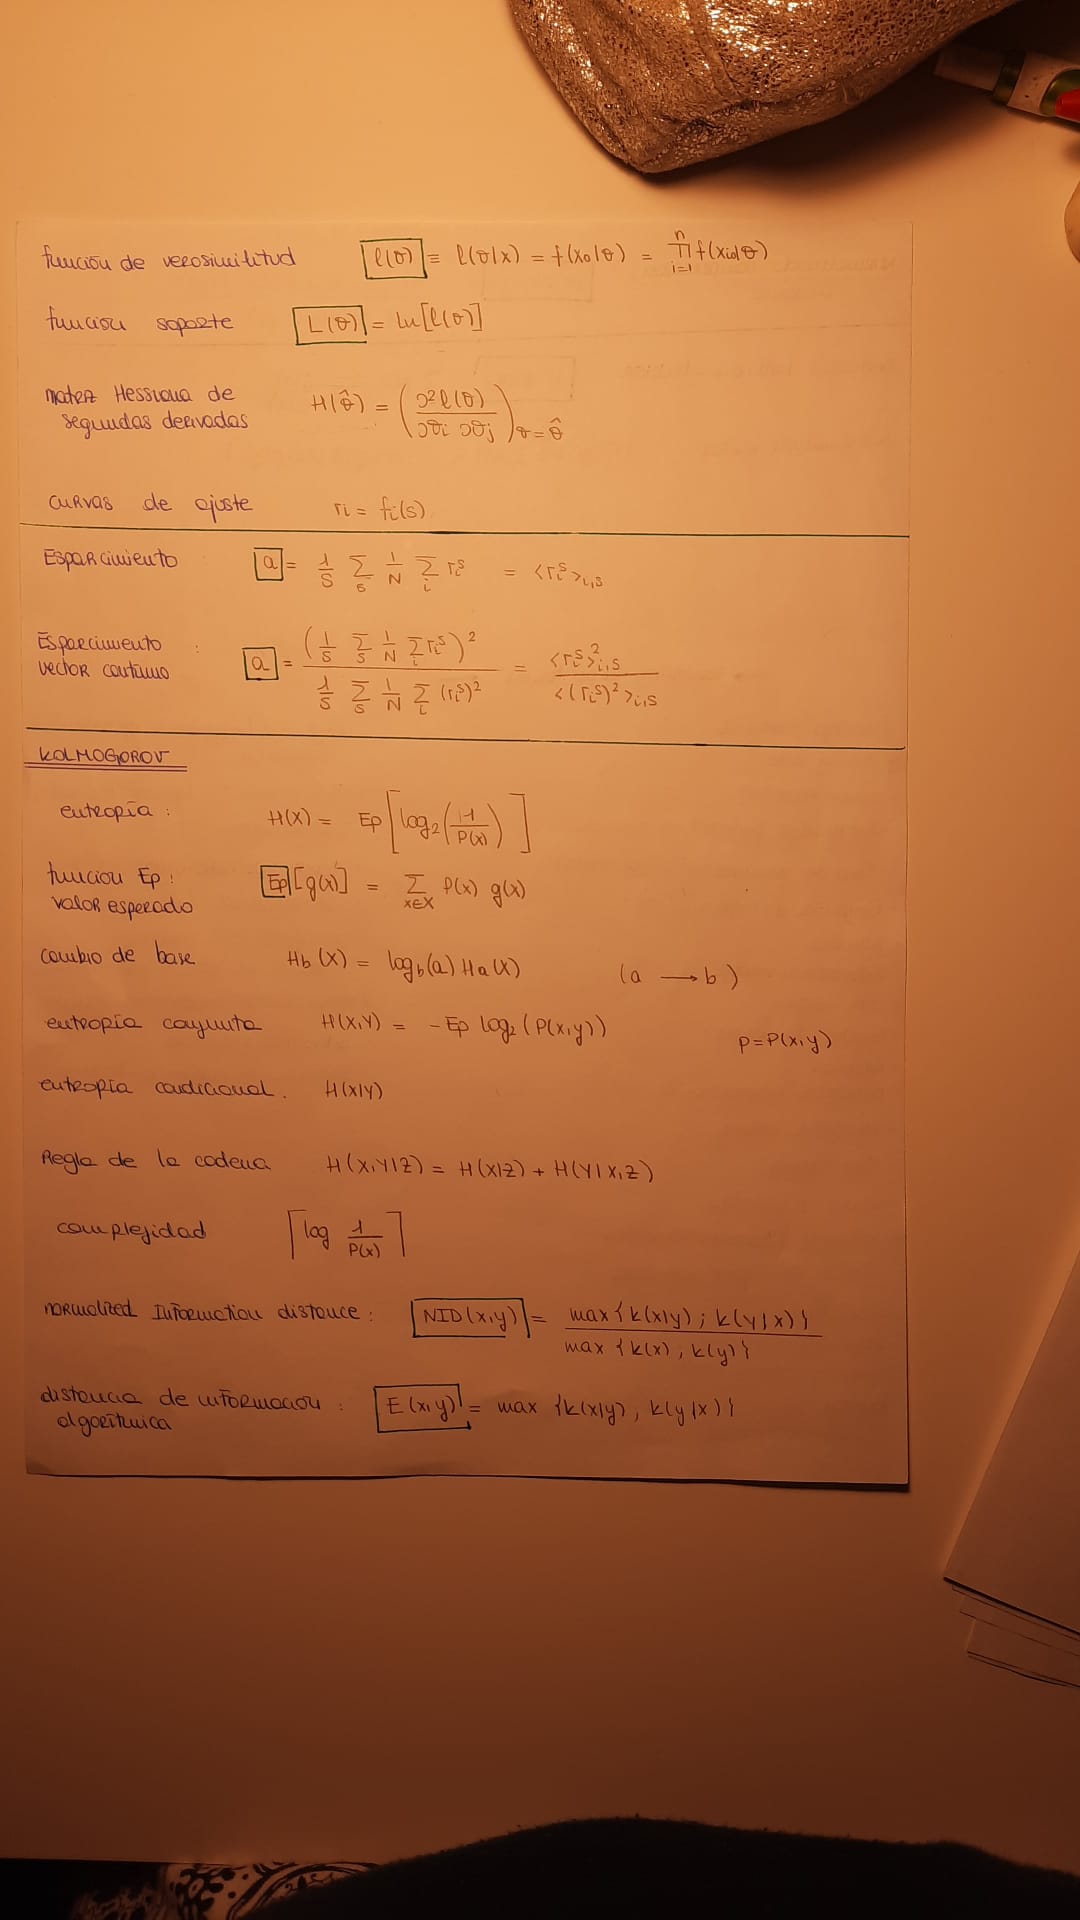 función de verosimilitud ℓ(θ) ≡ ℓ(θ|x) = f(x₀|θ) = ∏ᵢ₌₁ⁿ f(xᵢ₀|θ)
función soporte L(θ) = ln[ℓ(θ)]
matriz Hessiana de
segundas derivadas H(θ̂) = (∂²ℓ(θ) / ∂θi ∂θj)θ=θ̂
curvas de ajuste ri = fi(s)
Esparcimiento a = 1/S Σs 1/N Σi riˢ = <riˢ>i,s
Esparcimiento :
vector continuo a = (1/S Σs 1/N Σi riˢ)² / 1/S Σs 1/N Σi (riˢ)² = <riˢ>²i,s / <(riˢ)²>i,s
KOLMOGOROV
entropía : H(X) = Ep[log₂(1/P(x))]
función Ep :
valor esperado Ep[g(x)] = Σx∈X P(x) g(x)
cambio de base Hb(X) = logb(a) Ha(X) (a ⟶ b)
entropía conjunta H(X,Y) = -Ep log₂(P(x,y)) p=P(x,y)
entropía condicional. H(X|Y)
Regla de la cadena H(X,Y|Z) = H(X|Z) + H(Y|X,Z)
complejidad ⌈log 1/P(x)⌉
normalized Information distance : NID(x,y) = max{k(x|y) ; k(y|x)} / max {k(x), k(y)}
distancia de información : E(x,y) = max {k(x|y), k(y|x)}
algorítmica